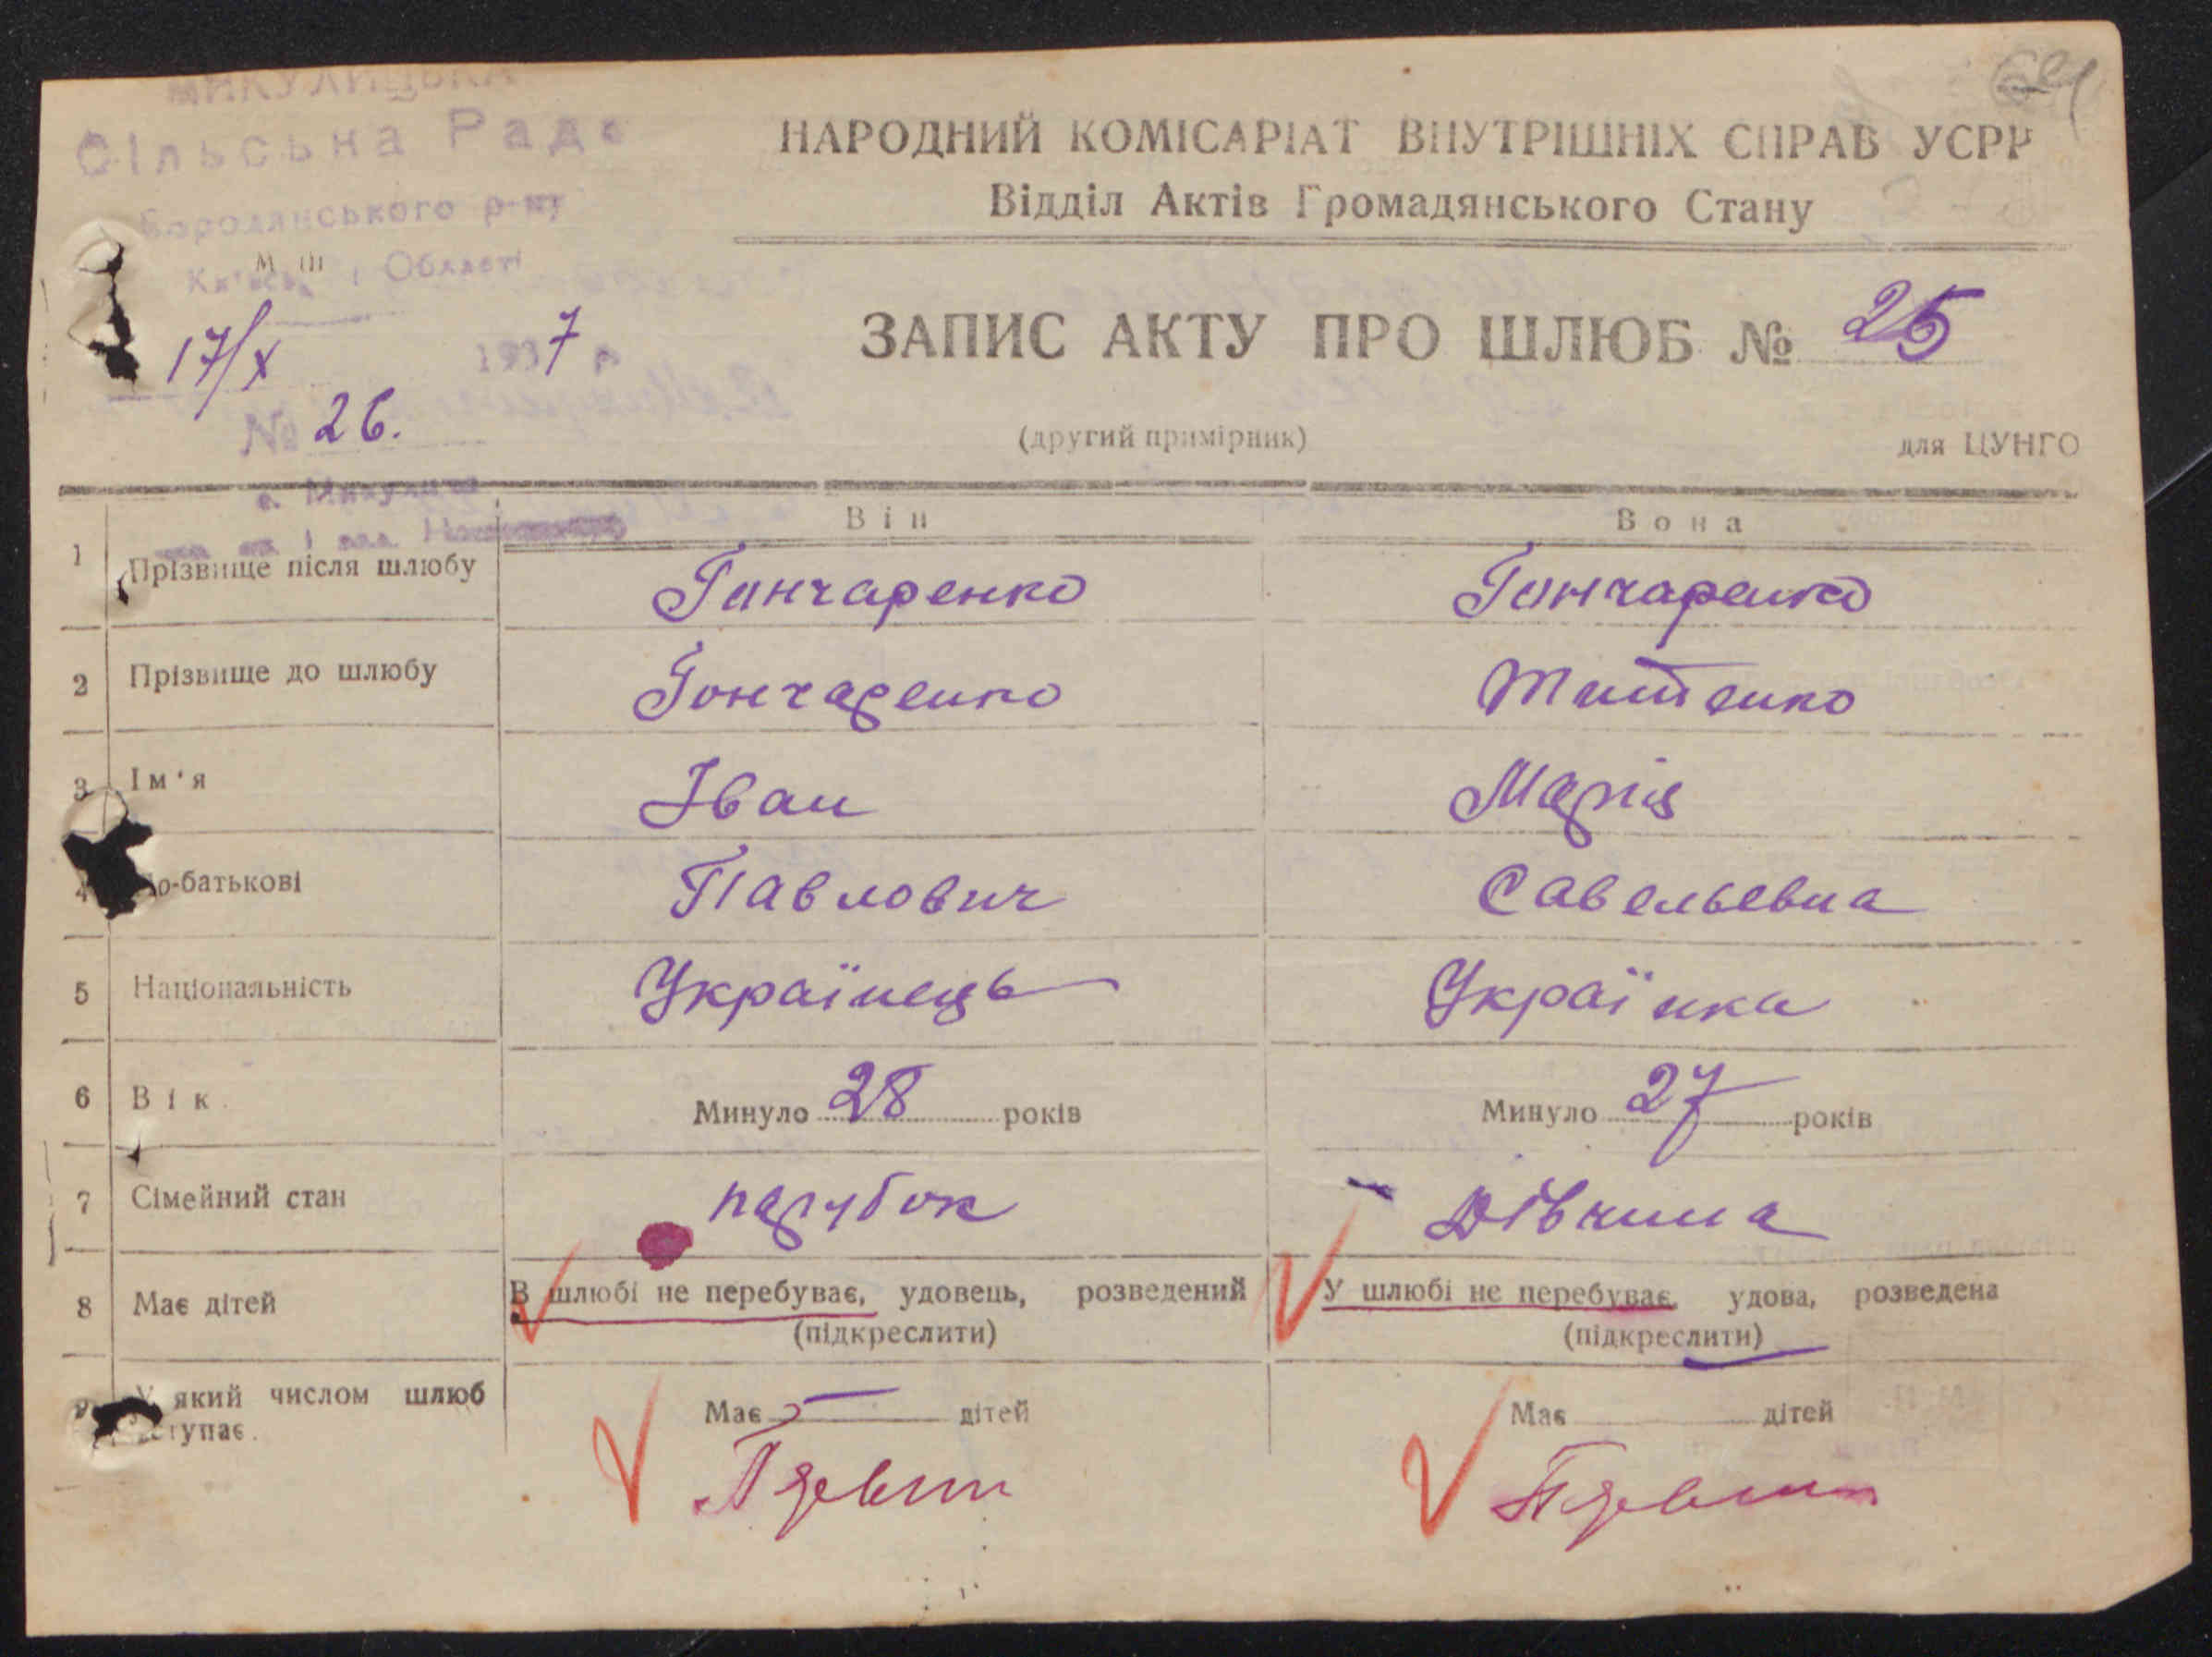 МИКУЛИЦЬКА
Сільська Рада
Бородянського р-ну
Області
17/X 1937 р.
№ 26.
с. Микуличі
НАРОДНИЙ КОМІСАРІАТ ВНУТРІШНІХ СПРАВ УСРР
Відділ Актів Громадянського Стану
ЗАПИС АКТУ ПРО ШЛЮБ № 25
(другий примірник) для ЦУНГО
Він Вона
1 Прізвище після шлюбу Гончаренко Гончаренко
2 Прізвище до шлюбу Гончаренко Титенко
3 Ім'я Іван Марія
4 по-батькові Павлович Савельевна
5 Національність Українець Українка
6 Вік Минуло 28 років Минуло 27 років
7 Сімейний стан парубок Дівчина
8 Має дітей В шлюбі не перебуває, удовець, розведений У шлюбі не перебуває, удова, розведена
(підкреслити) (підкреслити)
9 У який числом шлюб Має — дітей Має дітей
вступає.